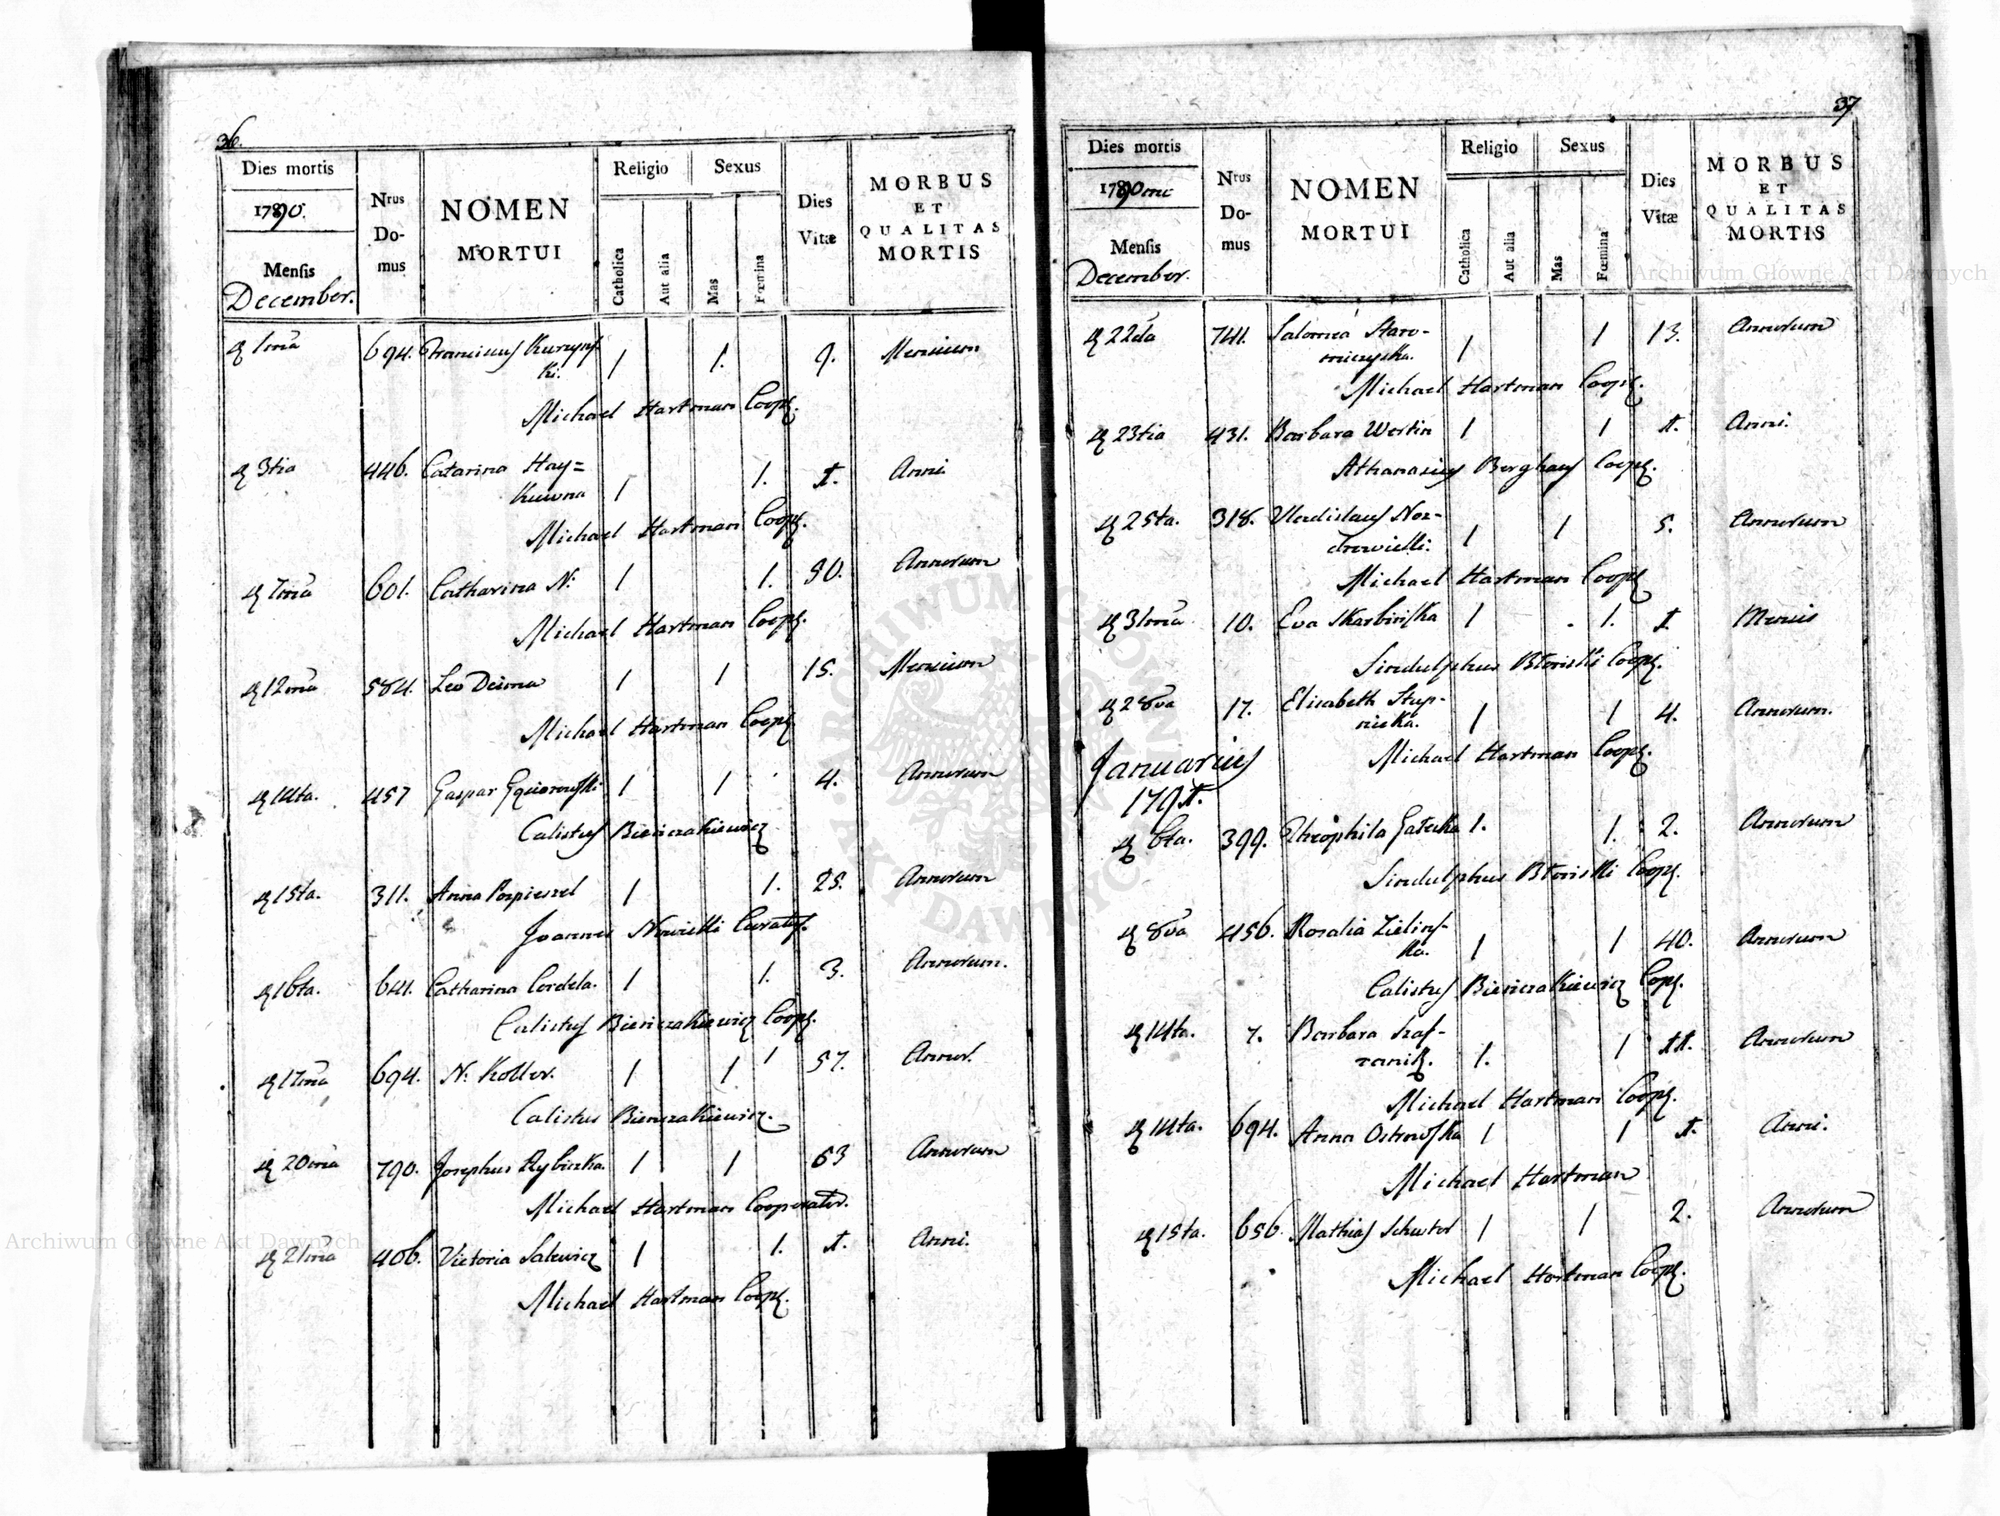 36.
Dies mortis
1790.
Mensis
December.
Nrus Do-
mus
NOMEN
MORTUI
Religio
Sexus
Catholica
Aut alia
Mas
Fœmina
Dies
Vitæ
MORBUS
ET
QUALITAS
MORTIS
1ma 694. Franciscus 1 1. 9. Mensium
Michael Hartman Coop.
3tia 446. Catarina Hay=
kuwna 1 1. 1. Anni
Michael Hartman Coop.
7ma 601. Catharina N: 1 1. 50. Annorum
Michael Hartman Coop.
12ma 584. Leo Deima 1 1 15. Mensium
Michael Hartman Coop.
14ta. 457 Gaspar 1 1 4. Annorum
Calistus Bieniczakiewicz
15ta. 311. Anna 1 1. 25. Annorum
Joannes Nowicki Curatus.
16ta. 641. Catharina Cordela. 1 1. 3. Annorum.
Calistus Bieniczakiewicz Coop.
17ma 694. N: Koller. 1 1 57. Annor.
Calistus Bieniczakiewicz.
20ma 790. Josephus Rybiczka. 1 1 63 Annorum
Michael Hartman Cooperator.
21ma 406. Victoria Salewicz 1 1. 1. Anni.
Michael Hartman Coop.
37
Dies mortis
1790mi
Mensis
December.
Nrus
Do-
mus
NOMEN
MORTUI
Religio
Sexus
Catholica
Aut alia
Mas
Fœmina
Dies
Vitæ
MORBUS
ET
QUALITAS
MORTIS
22da 741. Salomea Staro-
mieyska. 1 1 13. Annorum
Michael Hartman Coop.
23tia 431. Barbara Wertin 1 1 1. Anni.
Athanasius Berghaus Coop.
25ta. 318. Vladislaus 1 1 5. Annorum
Michael Hartman Coop.
31ma 10. Eva Skarbinska 1 1. 1. Mensis
Sindulphus Coop.
28va 17. Elisabeth Stup-
nicka. 1 1 4. Annorum.
Michael Hartman Coop.
Januarius
1791.
6ta. 399. Theophila 1. 1. 2. Annorum
Sindulphus Coop.
8va 456. Rosalia Zielins-
ka. 1 1 40. Annorum
Calistus Bieniczakiewicz Coop.
14ta. 7. Barbara 1. 1 11. Annorum
Michael Hartman Coop.
14ta. 694. Anna Ostrowska 1 1 1. Anni.
Michael Hartman
15ta. 656 Mathias Schuster 1 1 2. Annorum
Michael Hartman Coop.
Archiwum Główne Akt Dawnych
Archiwum Główne Akt Dawnych
ARCHIWUM GŁÓWNE AKT DAWNYCH